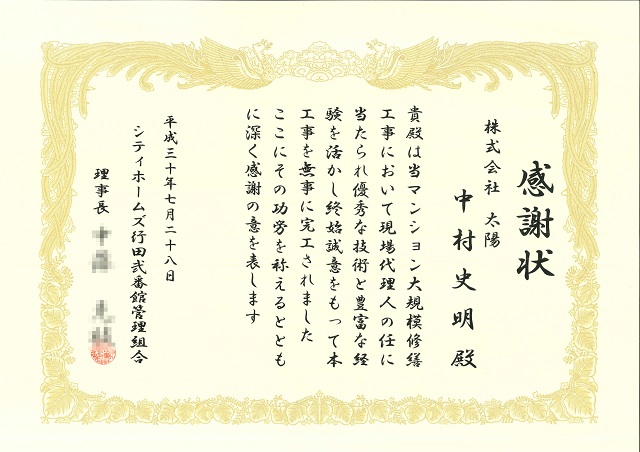 感謝状
株式会社 太陽
中村史明殿
貴殿は当マンション大規模修繕
工事において現場代理人の任に
当たられ優秀な技術と豊富な経
験を活かし終始誠意をもって本
工事を無事に完工されました
ここにその功労を称えるととも
に深く感謝の意を表します
平成三十年七月二十八日
シティホームズ行田弐番館管理組合
理事長